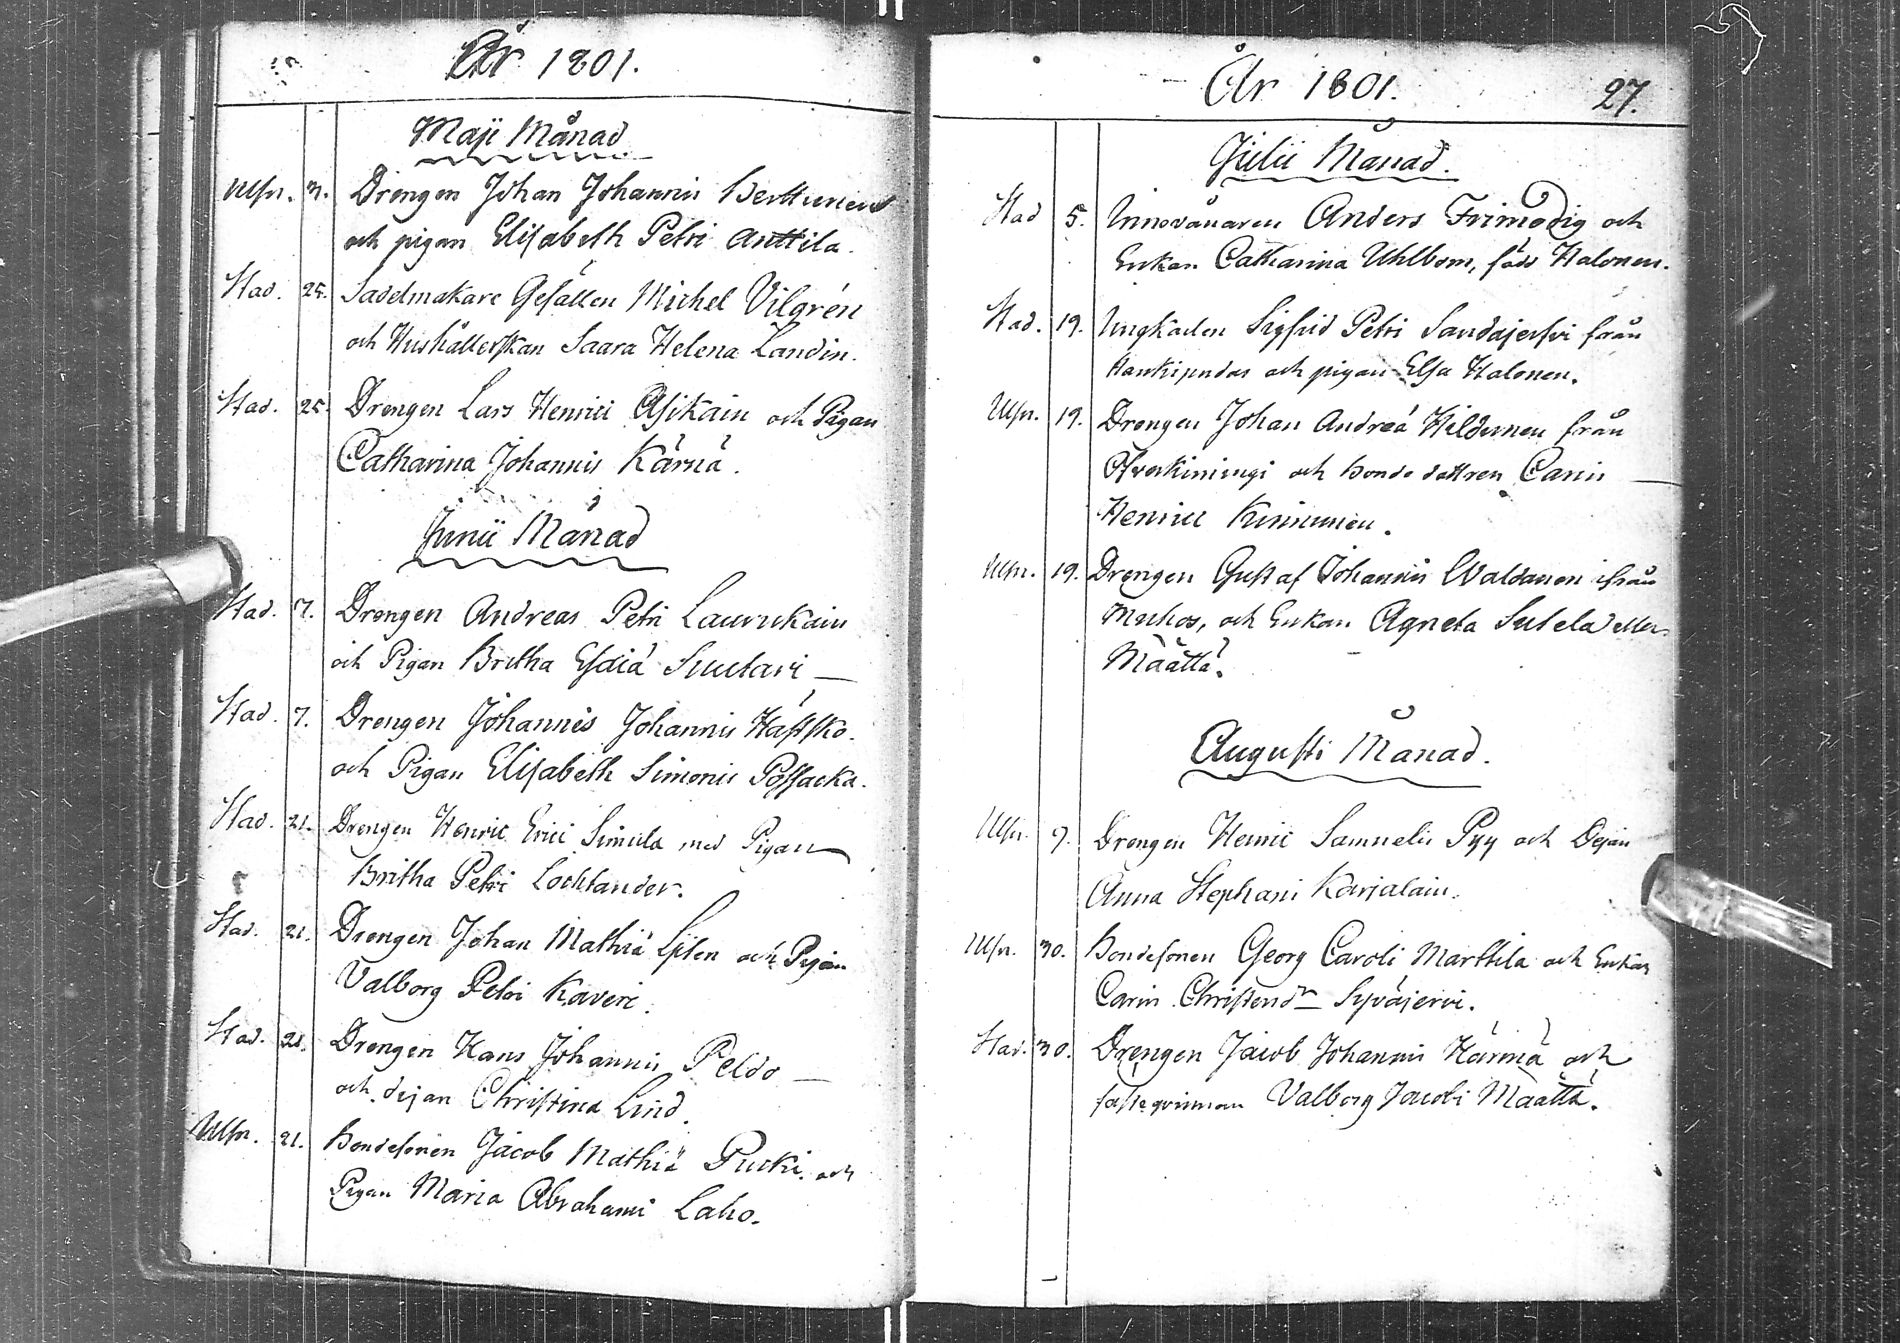 År 1801.
Maji Månad
Ulfr. 3. Drengen Johan Johannis Herttunen
och pigan Elisabeth Petri Anttila.
Stad. 25. Sadelmakare Gesällen Michel Vilgrén
och Hushållerskan Saara Helena Landin.
Stad. 25. Drengen Lars Henrici Asikain och Pigan
Catharina Johannis Kärnä.
Junii Månad
Stad. 7. Drengen Andreas Petri Laurukain
och Pigan Britha Esaiä Suutari —
Stad. 7. Drengen Johannes Johannis Hästsko.
och Pigan Elisabeth Simonis Possacka.
Stad. 21. Drengen Henric Erici Simula med Pigan
Britha Petri Lochlander.
Stad. 21. Drengen Johan Mathiä och Pijan
Valborg Petri Kaveri.
Stad. 21. Drengen Hans Johannis Peldo —
och dejan Christina Lind.
Ulfr. 21. Bondesonen Jacob Mathiä Pucki och
Pigan Maria Abrahami Laho.
År 1801. 27.
Julii Månad.
Stad 5. Innevånaren Anders Frimodig och
Enkan Catharina Uhlbom, född Halonen.
Stad. 19. Ungkarlen Sigfrid Petri Sandajerfvi från
Haukipudas och pigan Elsa Halonen.
Ulfr. 19. Drengen Johan Andreä Hildunen från
Öfverkimingi och bonde dottren Carin —
Henrici Kinnunen.
Ulfr. 19. Drengen Gustaf Johannis Waldanen ifrån
Muhos, och Enkan Agneta Sutela eller
Määttä.
Augusti Månad.
Ulfr. 9. Drengen Henric Samuelis Pyy och Dejan
Anna Stephani Karjalain.
Ulfr. 30. Bondesonen Georg Caroli Marttila och Enkan
Carin Christendr Syväjervi.
Stad. 30. Drengen Jacob Johannis Härmä och
fästeqvinnan Valborg Jacobi Määttä.